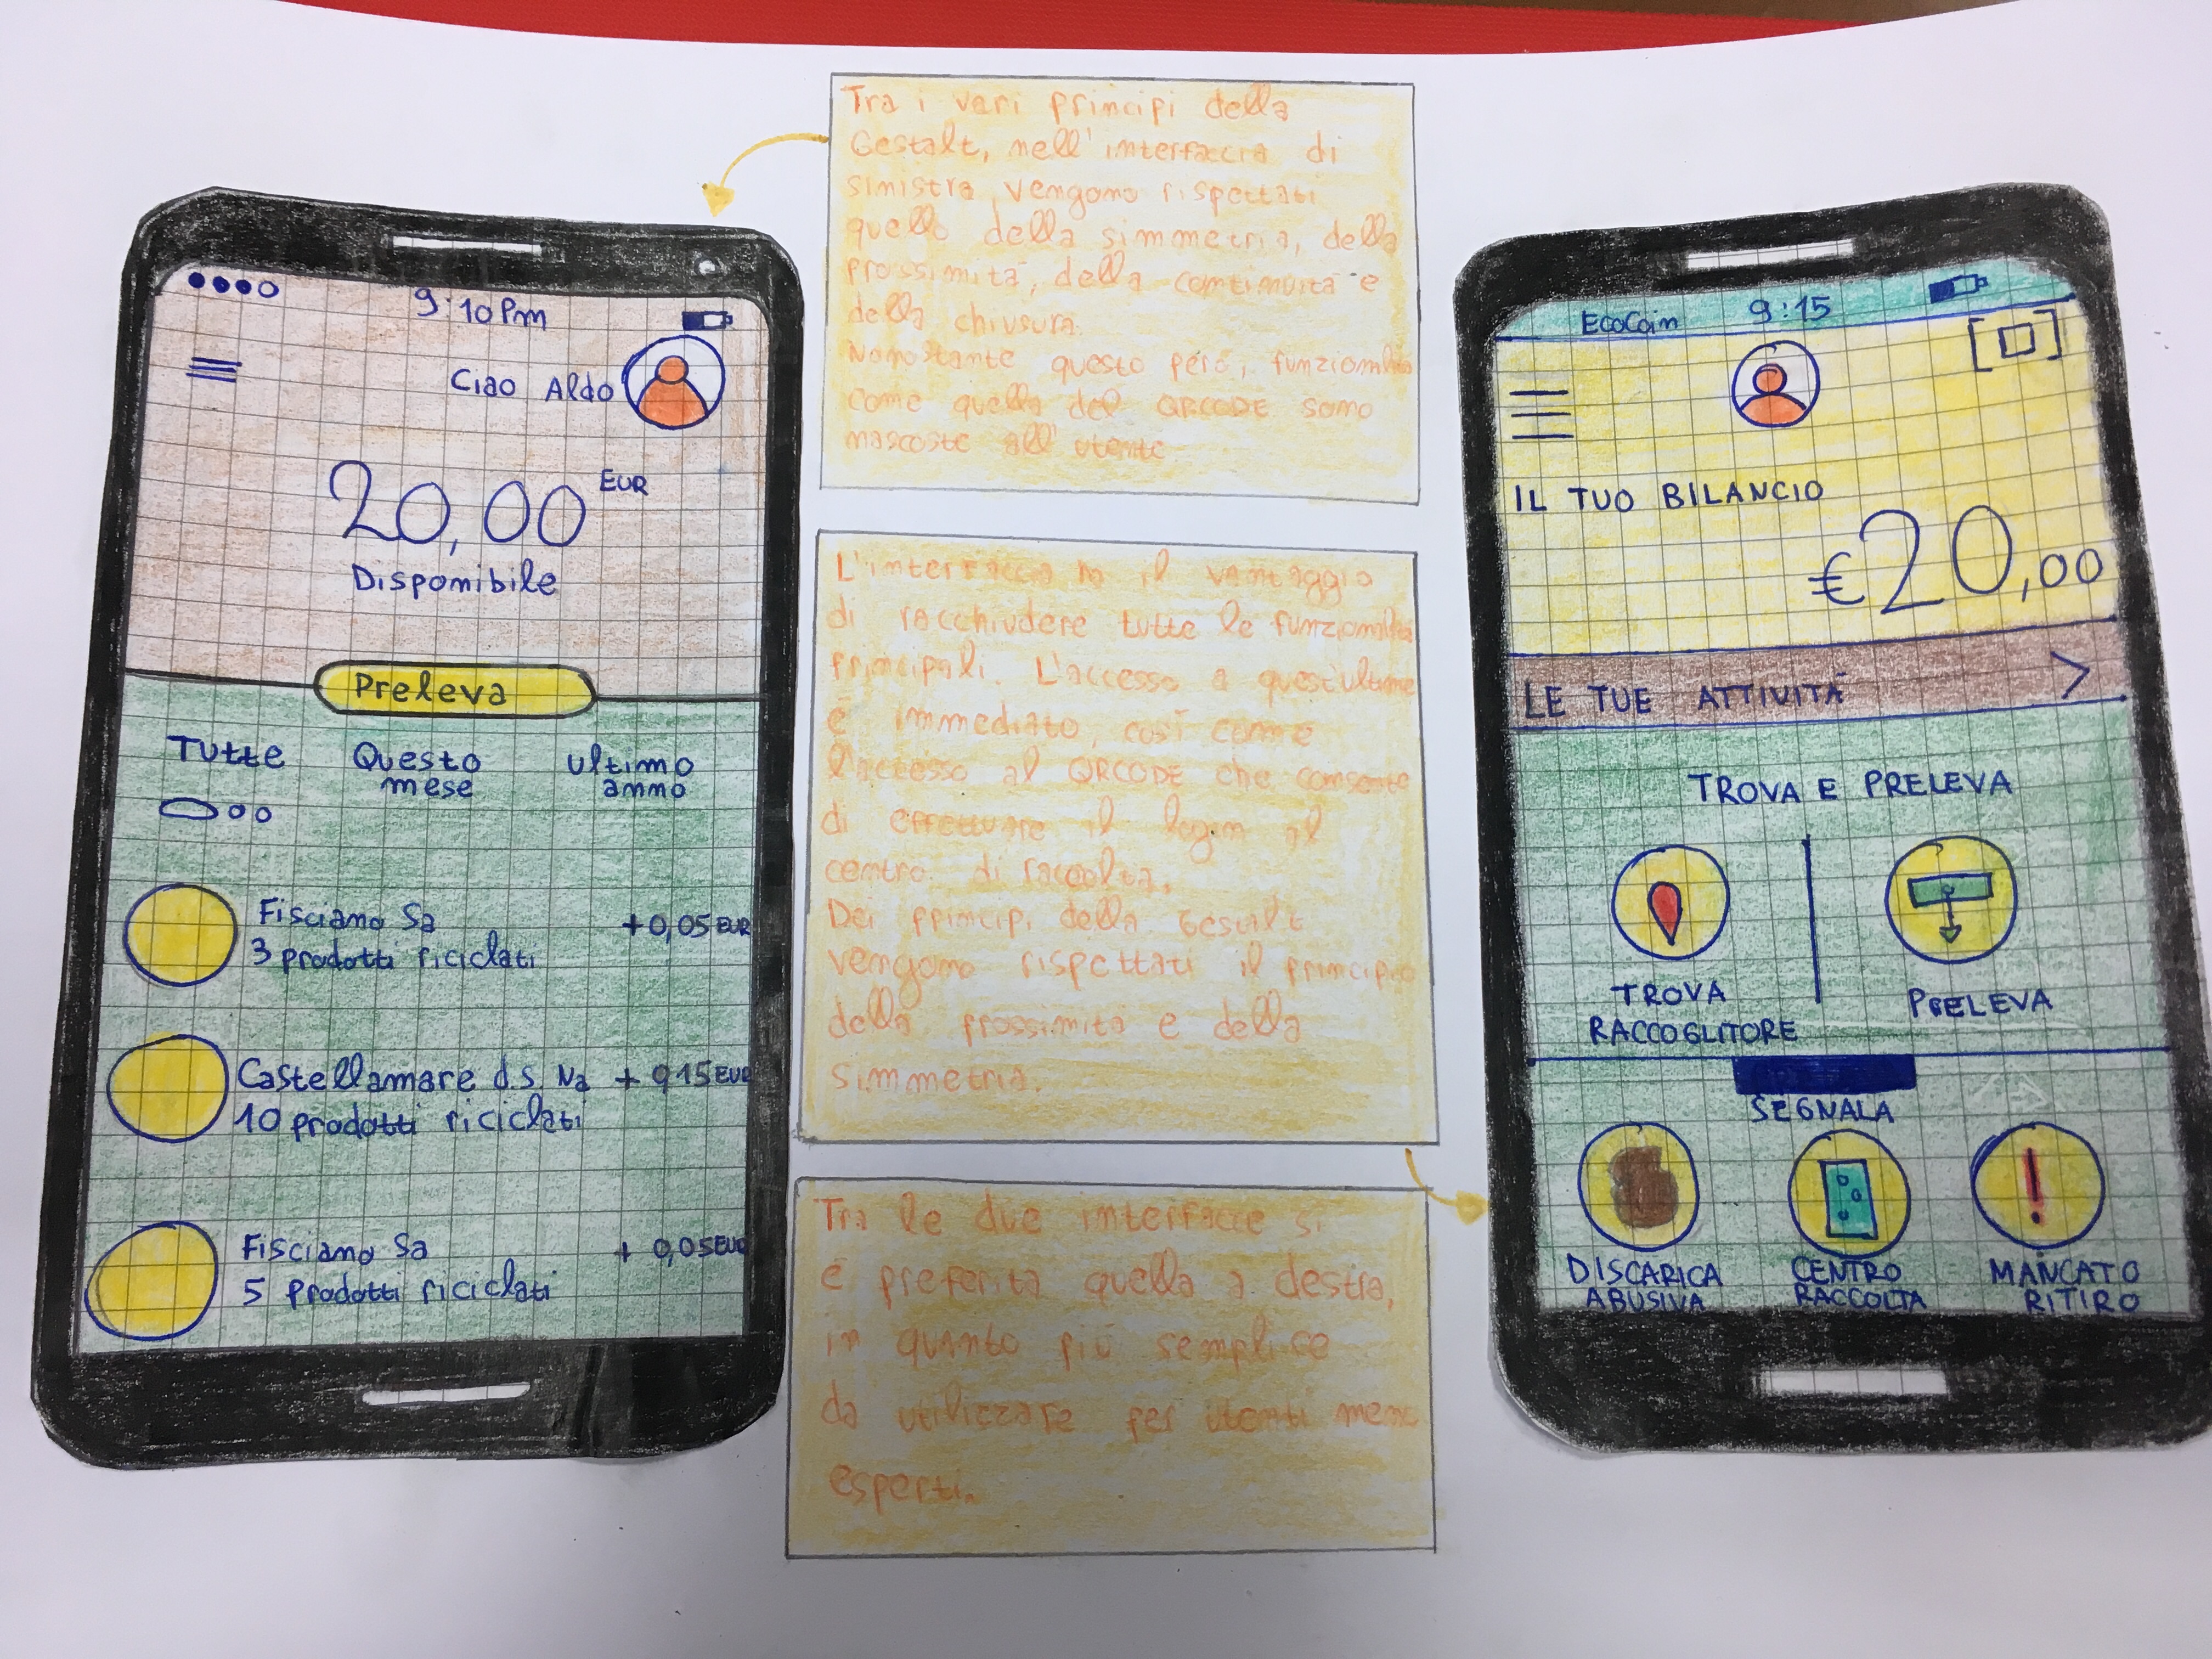 9:10 Pm
Ciao Aldo
20,00 EUR
Disponibile
Preleva
Tutte Questo mese Ultimo anno
Fisciano Sa +0,05 EUR
3 prodotti riciclati
Castellamare d.S. Na + 0,15 EUR
10 prodotti riciclati
Fisciano Sa + 0,05 EUR
5 prodotti riciclati
Tra i vari principi della
Gestalt, nell'interfaccia di
sinistra, vengono rispettati
quello della simmetria, della
prossimità, della continuità e
della chiusura.
Nonostante questo però, funzionalità
come quella del QRCODE sono
nascoste all'utente.
L'interfaccia ha il vantaggio
di racchiudere tutte le funzionalità
principali. L'accesso a quest'ultime
è immediato, così come
l'accesso al QRCODE che consente
di effettuare il login al
centro di raccolta.
Dei principi della Gestalt
vengono rispettati il principio
della prossimità e della
simmetria.
Tra le due interfacce si
è preferita quella a destra,
in quanto più semplice
da utilizzare per utenti meno
esperti.
EcoCoin 9:15
IL TUO BILANCIO
€20,00
LE TUE ATTIVITÀ >
TROVA E PRELEVA
TROVA
RACCOGLITORE
PRELEVA
SEGNALA
DISCARICA
ABUSIVA
CENTRO
RACCOLTA
MANCATO
RITIRO